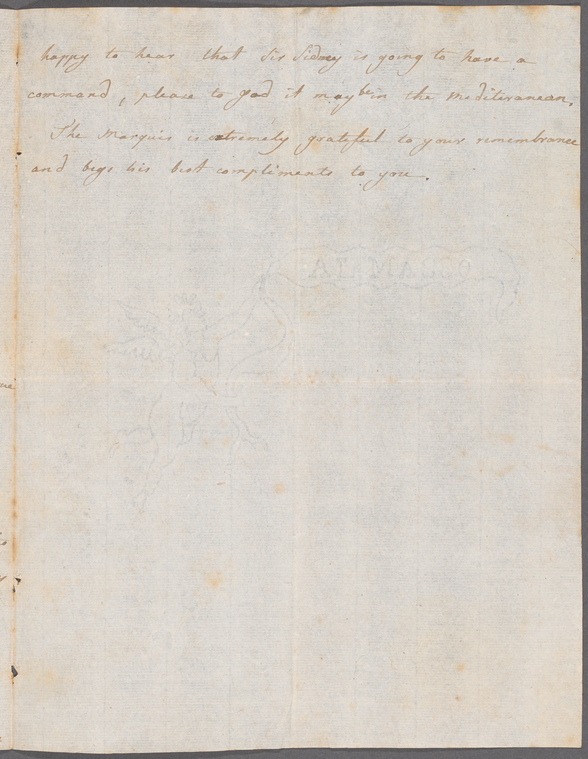 happy to hear that Sir Sidney is going to have a
command, please to god it may be in the Mediteranean.
The Marquis is extremely grateful to your remembrance
and begs his best compliments to you.
me